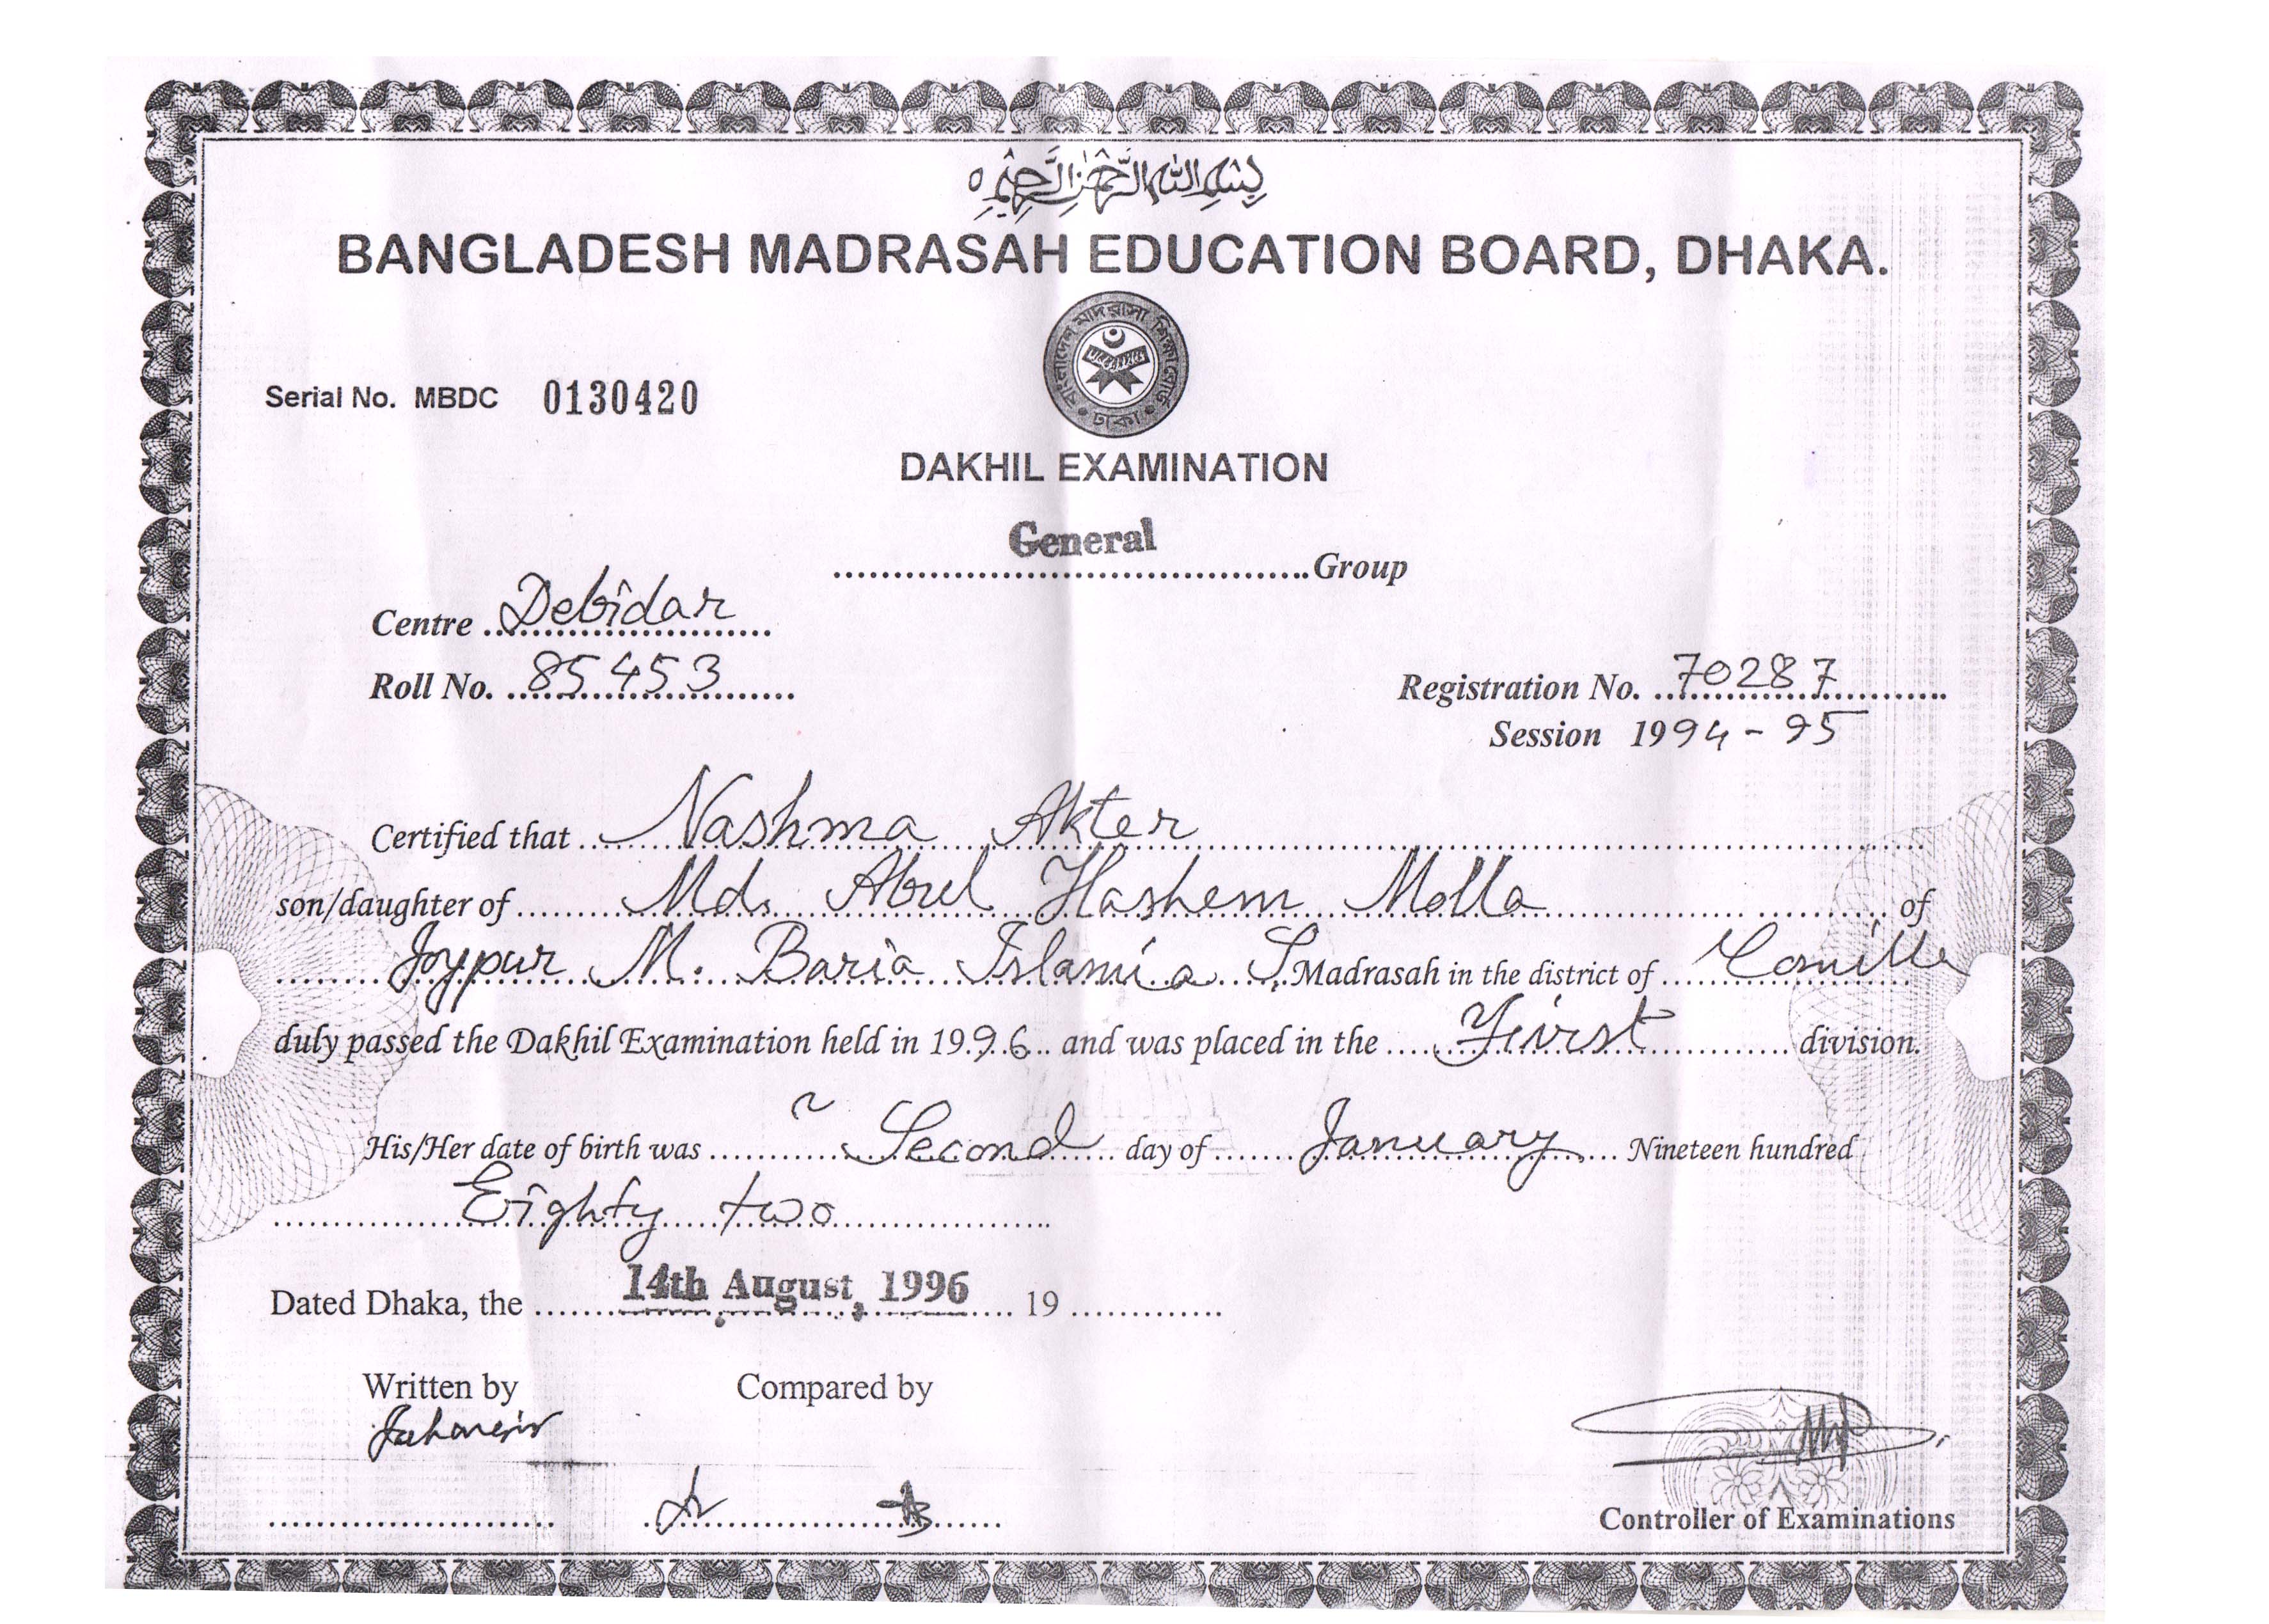 بِسْمِ اللهِ الرَّحْمٰنِ الرَّحِيْمِ ٥
BANGLADESH MADRASAH EDUCATION BOARD, DHAKA.
বাংলাদেশ মাদরাসা শিক্ষা বোর্ড
ঢাকা
Serial No. MBDC 0130420
DAKHIL EXAMINATION
General Group
Centre Debidar
Roll No. 85453
Registration No. 70287
Session 1994-95
Certified that Nashma Akter
son/daughter of Md. Abul Hashem Molla of
Joypur M. Baria Islamia S. Madrasah in the district of Comilla
duly passed the Dakhil Examination held in 1996 and was placed in the First division.
His/Her date of birth was Second day of January Nineteen hundred
Eighty two
Dated Dhaka, the 14th August, 1996 19
Written by Compared by
Controller of Examinations